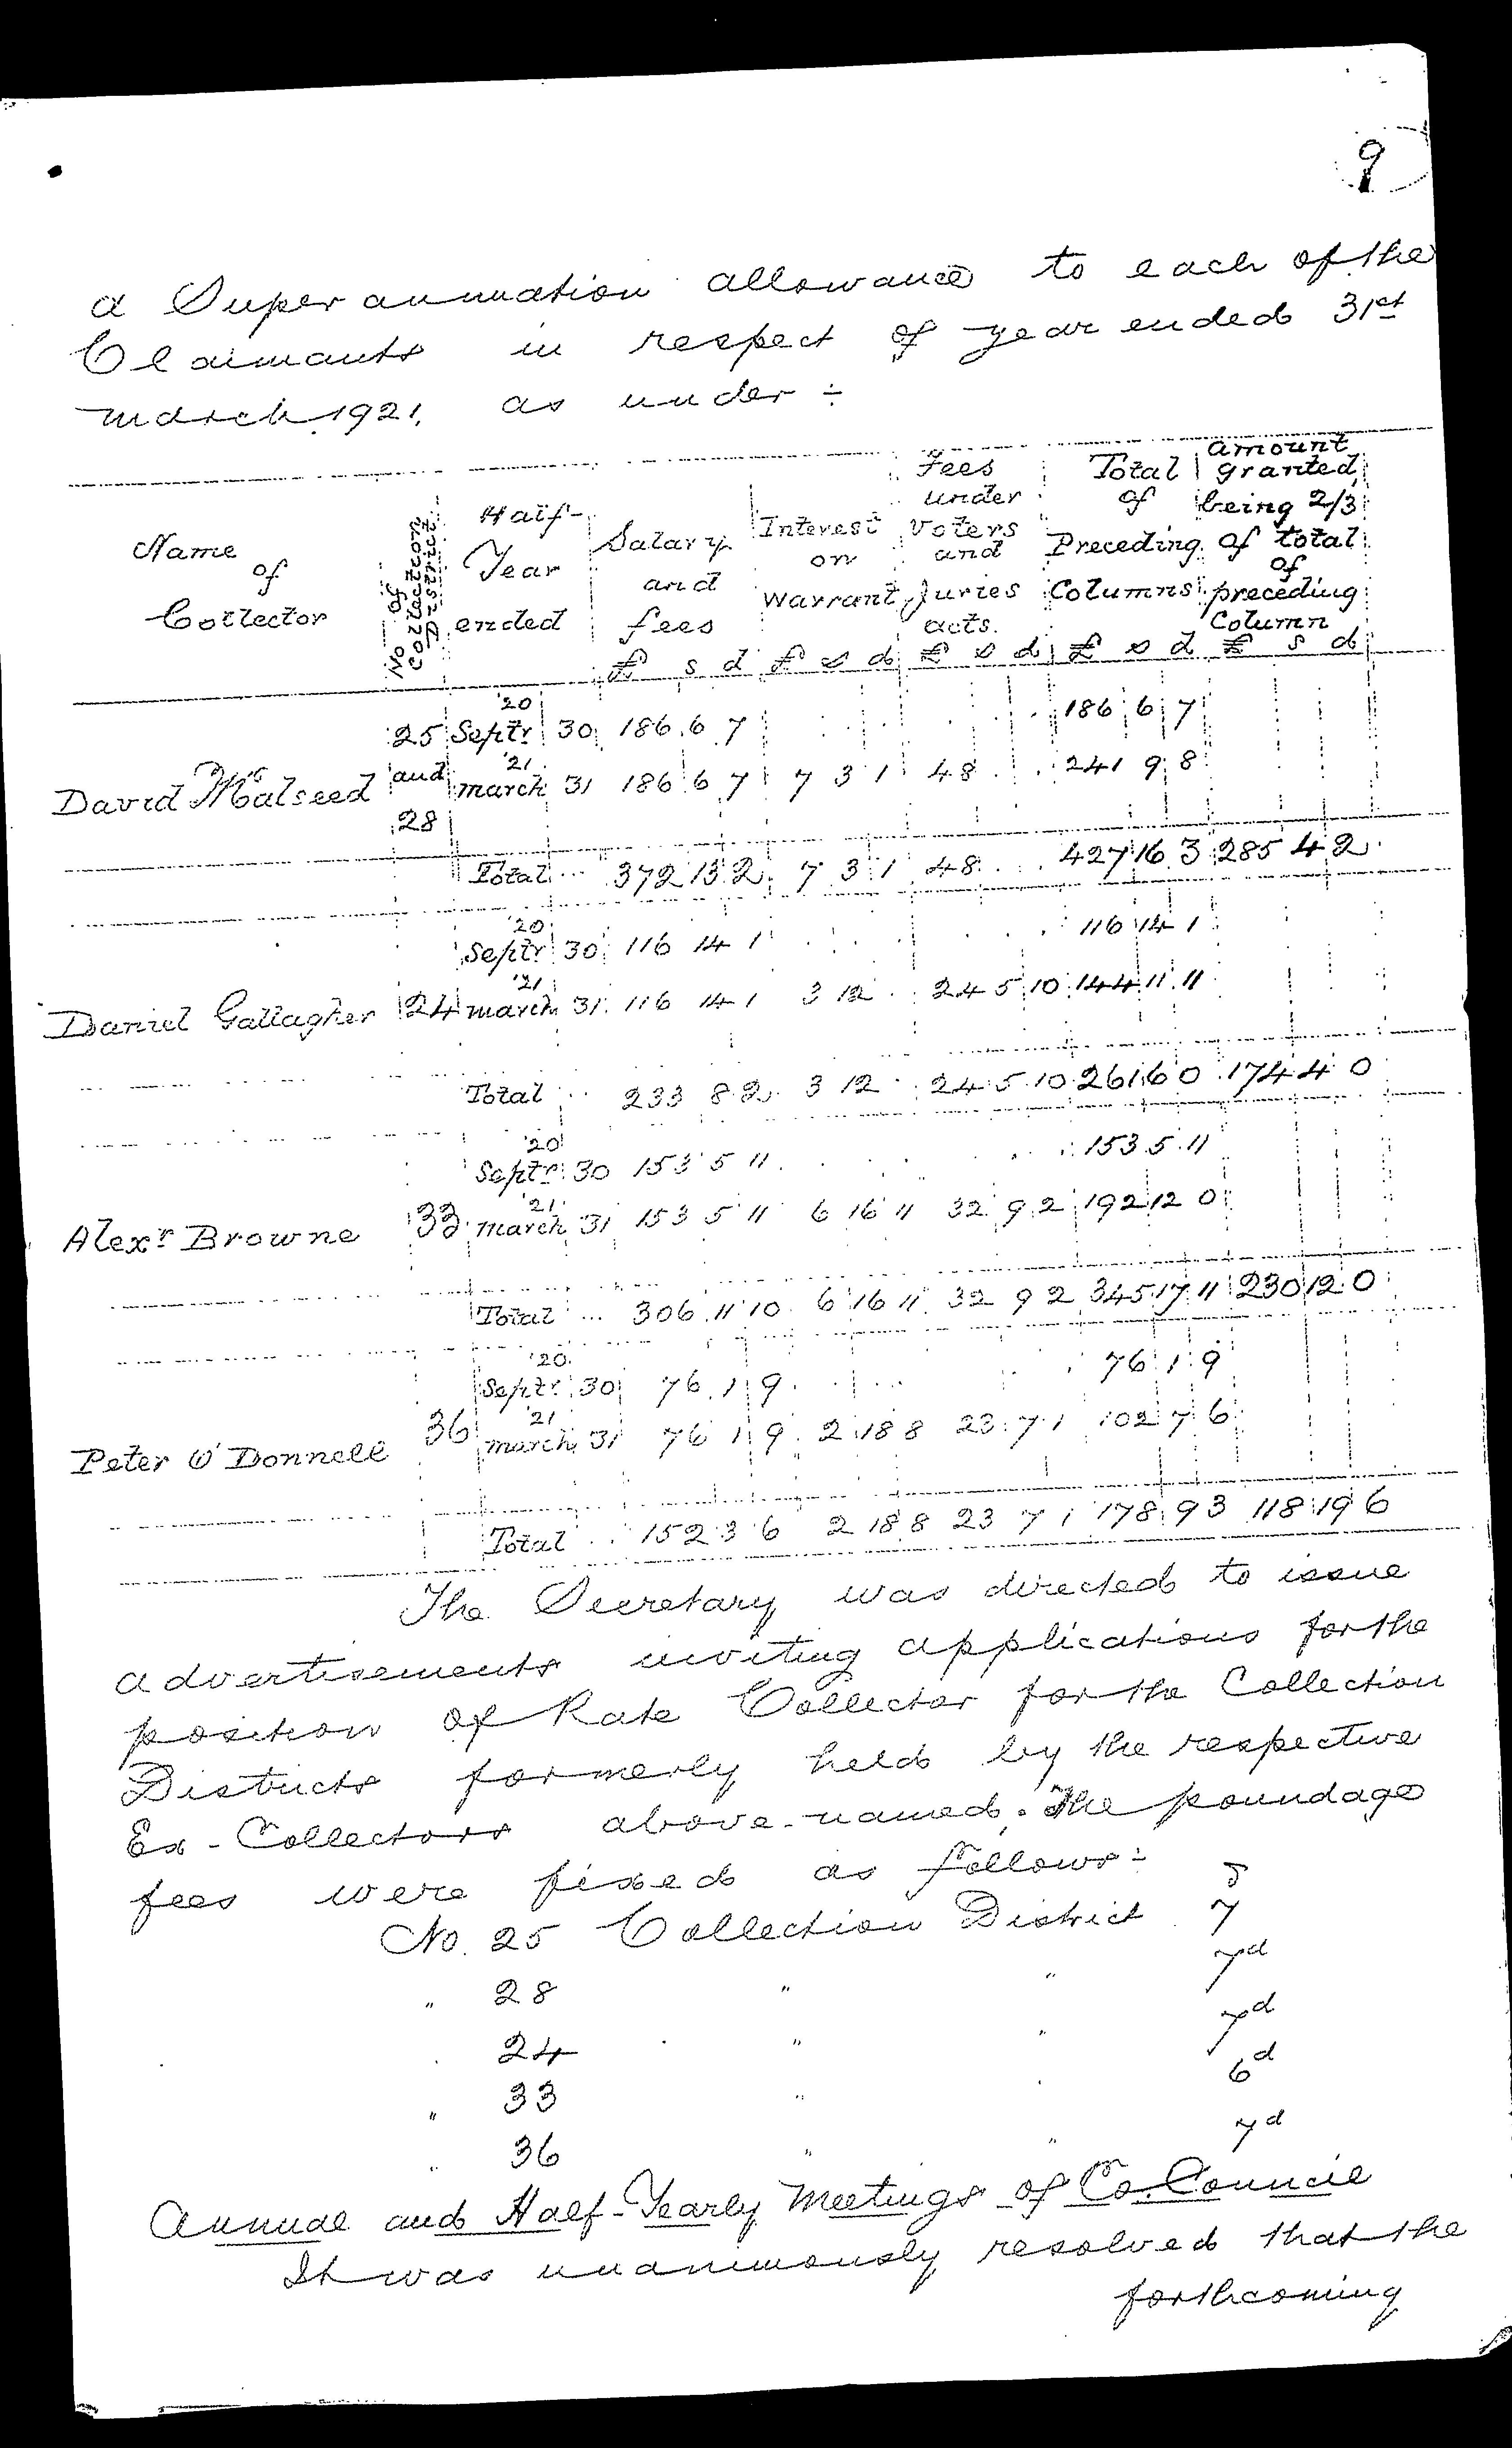 9
a Superannuation allowance to each of the
Claimants in respect of year ended 31st
March 1921, as under ÷
Name of Collector | No of Collection District | Half-Year ended | Salary and fees £ s d | Interest on Warrant £ s d | Fees under Voters and Juries acts. £ s d | Total of Preceding Columns £ s d | amount granted, being 2/3 of total of preceding Column £ s d
David McMalseed | 25 and 28 | Septr '20 30 | 186 6 7 | . . . | . . . | 186 6 7
march '21 31 | 186 6 7 | 7 3 1 | 48 . . | 241 9 8
Total ... | 372 13 2 | 7 3 1 | 48 . . | 427 16 3 | 285 4 2
Daniel Gallagher | 24 | Septr '20 30 | 116 14 1 | . . . | . . . | 116 14 1
march '21 31 | 116 14 1 | 3 12 . | 24 5 10 | 144 11 11
Total .. | 233 8 2 | 3 12 . | 24 5 10 | 261 6 0 | 174 4 0
Alexr Browne | 33 | Septr '20 30 | 153 5 11 | . . . | . . . | 153 5 11
march '21 31 | 153 5 11 | 6 16 11 | 32 9 2 | 192 12 0
Total ... | 306 11 10 | 6 16 11 | 32 9 2 | 345 17 11 | 230 12 0
Peter O'Donnell | 36 | Septr '20 30 | 76 1 9 | . . . | . . . | 76 1 9
march '21 31 | 76 1 9 | 2 18 8 | 23 7 1 | 102 7 6
Total .. | 152 3 6 | 2 18 8 | 23 7 1 | 178 9 3 | 118 19 6
The Secretary was directed to issue
advertisements inviting applications for the
position of Rate Collector for the Collection
Districts formerly held by the respective
Ex-Collectors above-named. The poundage
fees were fixed as follows:-
No. 25 Collection District 7d
" 28 " " 7d
" 24 " " 7d
" 33 " " 6d
" 36 " " 7d
Annual and Half-Yearly Meetings of Co. Council
It was unanimously resolved that the
forthcoming